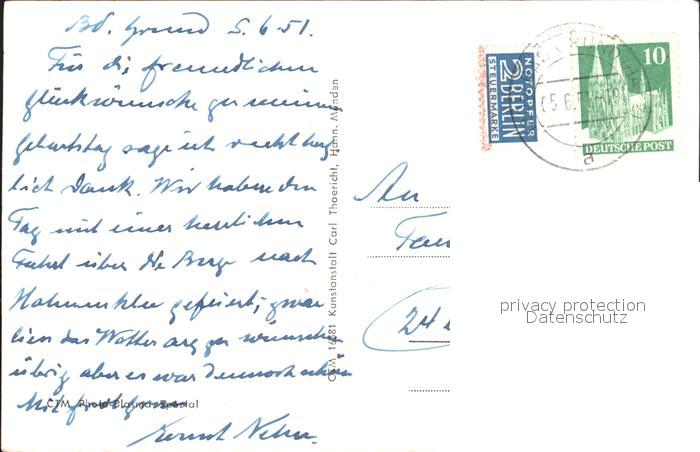 Bd. Grund 5.6.51.
Für die freundlichen
Glückwünsche zu meinem
Geburtstag sage ich recht herz
lich Dank. Wir haben den
Tag mit einer herrlichen
Fahrt über die Berge nach
Hahnenklee gefeiert; zwar
liess das Wetter arg zu wünschen
übrig aber es war dennoch schön
Mit
Ernst
CTM Photo-Blanco-Spezial
CTM 16681 Kunstanstalt Carl Thoericht, Hann. Münden
NOTOPFER
2 BERLIN
STEUERMARKE
10
DEUTSCHE POST
An
Fam
24
privacy protection
Datenschutz